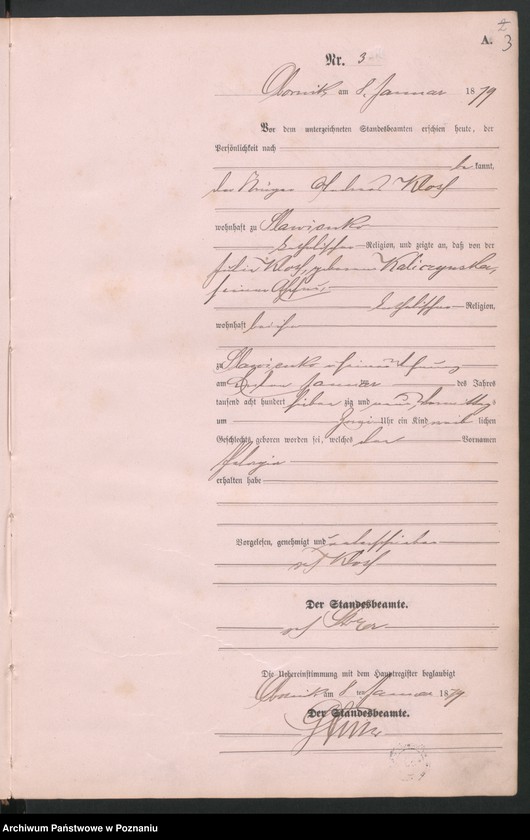 A.
3
Nr. 3
Obornik am 8. Januar 1879
Vor dem unterzeichneten Standesbeamten erschien heute, der
Persönlichkeit nach
bekannt,
der Andreas Kloss
wohnhaft zu Slawienko
katholischer Religion, und zeigte an, daß von der
Kloss, geborenen Kaliczynska,
seiner Ehefrau,
katholischer Religion,
wohnhaft bei ihm
zu Slawienko in seiner Wohnung
am Januar des Jahres
tausend acht hundert siebenzig und neun, Vormittags
um Uhr ein Kind weiblichen
Geschlechts geboren worden sei, welches den Vornamen
Pelagia
erhalten habe
Vorgelesen, genehmigt und unterschrieben
Kloss
Der Standesbeamte.
Die Uebereinstimmung mit dem Hauptregister beglaubigt
Obornik am 8 ten Januar 1879
Der Standesbeamte.
Archiwum Państwowe w Poznaniu